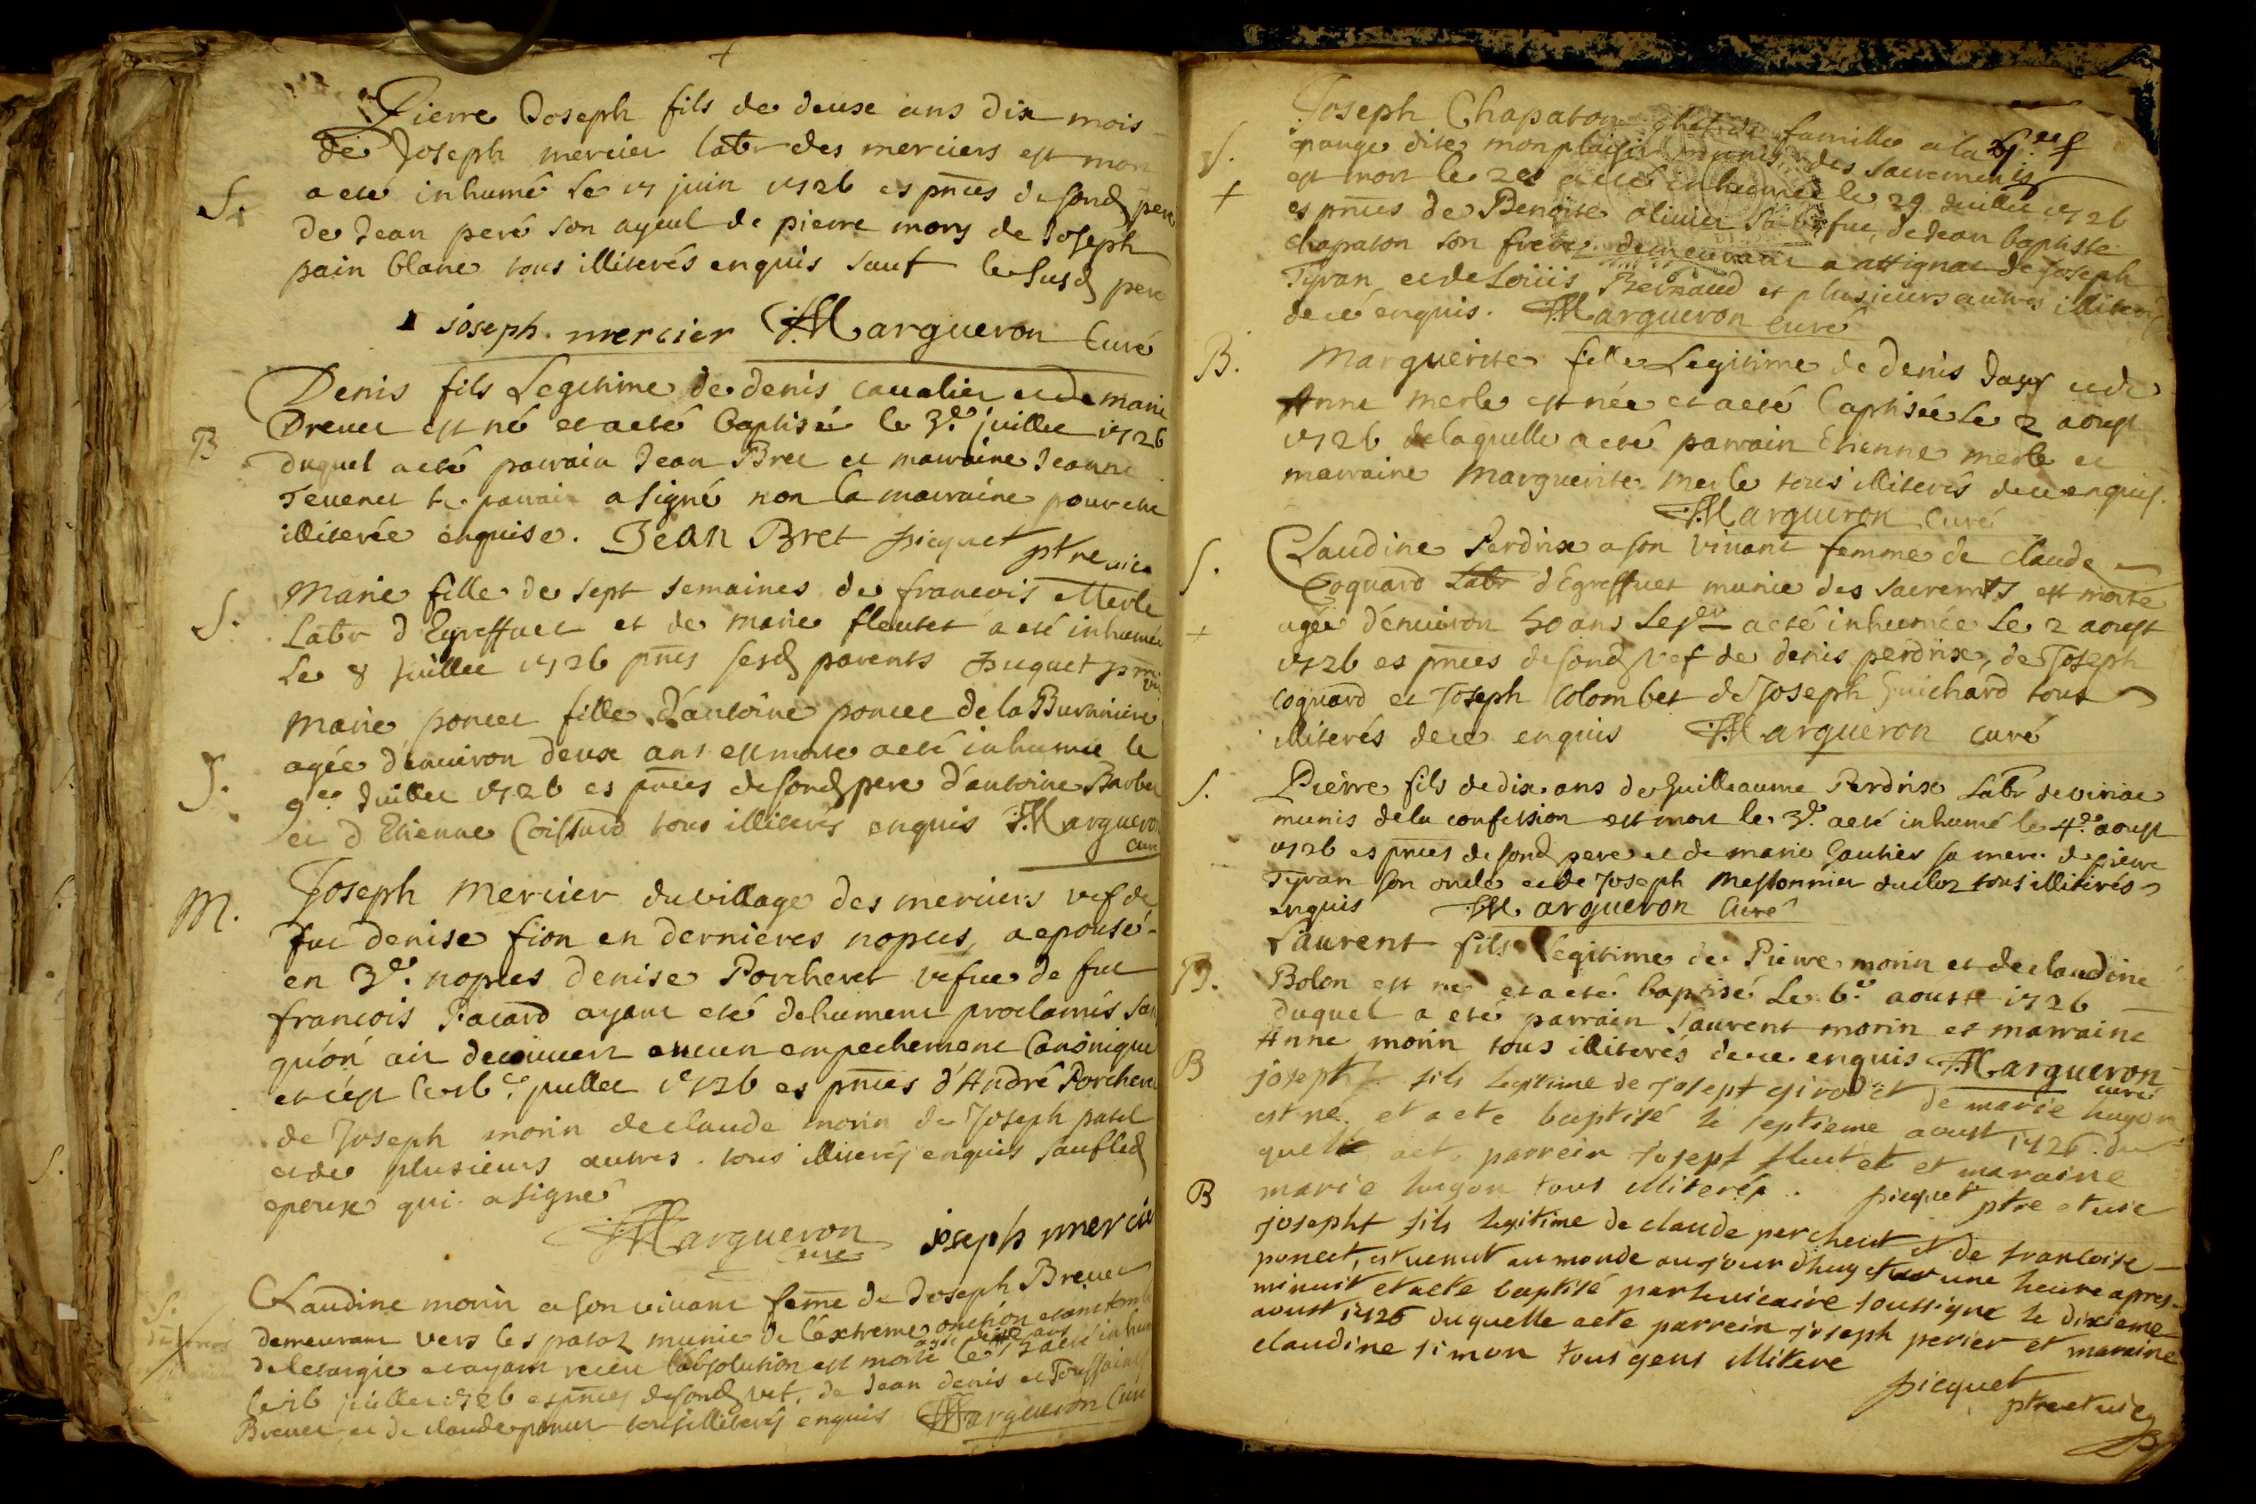 Pierre Joseph fils de deuse ans dix mois
de Joseph mercier labr des merciers est mort
S. a eté inhumé Le 17 juin 1726 es pnces de sond pere
de Jean peré son ayeul de pierre mory de Joseph
pain blanc tous illiterés enquis sauf le susd pere
joseph mercier Margueron Curé
Denis fils Legitime de denis cavalier et de marie
Brevet est né et a eté baptisé le 3e juillet 1726
B duquel a eté parrain Jean Bret et marraine Jeanne
Tevenet le parrain a signé non la marraine pour etre
illiterée enquise. Jean Bret picquet ptre vice
S. Marie fille de sept semaines de francois Merle
Labr d Egreffuet et de marie fleutet a eté inhumée
Le 8 juillet 1726 pnces sesd parents picquet ptre
Marie poncet fille d'antoine poncet de la Buronniere
agée d'environ deux ans est morte a eté inhumée le
S. 9e Juillet 1726 es pnces de sond pere d'antoine Barbet
et d Etienne Coissard tous illiterés enquis Margueron
curé
M. Joseph Mercier du village des merciers vef de
fue denise fion en dernieres nopces, a epousé
en 3e nopces denise Porcheret vefue de fut
francois Pacard ayant eté dehument proclamés sans
qu'on ait decouvert aucun empechement Canonique
et c'est le 16e juillet 1726 es pnces d'André Porcheret
de Joseph morin de claude morin de Joseph patel
et de plusieurs autres tous illiterés enquis sauf led
epoux qui a signé
Margueron curé joseph mercier
S. Claudine morin a son vivant feme de Joseph Brevet
demeurant vers les patoz munie de l'extreme onction etant tombé
de letargie et ayant receu l'absolution est morte
le 16 juillet 1726 es pnces de sond vef, de Jean denis et Toussaint
Brevet et de claude poncet tous illiterés enquis Margueron Curé
Joseph Chapaton chef de famille a la
S. grange dite monplaisir munis des sacrements
+ est mort le 28 a eté inhumé le 29 Juillet 1726
es pnces de Benoite olivier sa vefue, de Jean baptiste
chapaton son frere demeurant a attignat de Joseph
Tyran et de Louis Bernaud et plusieurs autres illiterés
de ce enquis. Margueron curé
B. Marguerite fille Legitime de denis Jays et de
Anne merle est née et a eté baptisée Le 2 aoust
1726 de laquelle a eté parrain Etienne merle et
marraine Marguerite merle tous illiterés de ce enquis.
Margueron Curé
S. Claudine Perdrix a son vivant femme de claude
Coquard Labr d'Egreffuet munie des sacremts est morte
+ agée d'environ 50 ans Le 1er a eté inhumée Le 2 aoust
1726 es pnces de sond vef de denis perdrix, de Joseph
coquard et Joseph Colombet de Joseph Guichard tous
illiterés de ce enquis Margueron curé
S. Pierre fils de dix ans de Guilleaume Perdrix Labr
munis de la confession est mort le 3e a eté inhumé le 4e aoust
1726 es pnces de sond pere et de marie Gautier sa mere de pierre
Tyran son oncle et de Joseph Messonnier ducloz tous illiterés
enquis Margueron Curé
Laurent fils Legitime de Pierre morin et de claudine
B. Bolon est né et a eté baptisé Le 6e aoust 1726
duquel a eté parrain Laurent morin et marraine
Anne morin tous illiterés de ce enquis Margueron
curé
B joseph fils legitime de josept girodet de marie hugon
est ne et a ete baptisé le septieme aoust 1726 du
quelle a ete parrein josept fleutet et maraine
marie hugon tous illiterés. picquet ptre et vice
B josepht fils legitime de claude percheut et de francoise
poncet, est venut au monde aujourdhuy une heure apres
minuit et a ete baptisé par le vicaire soussigne le dixieme
aoust 1726 duquelle a ete parrein joseph perier et maraine
claudine simon tous gens illitere
picquet
ptre et vice